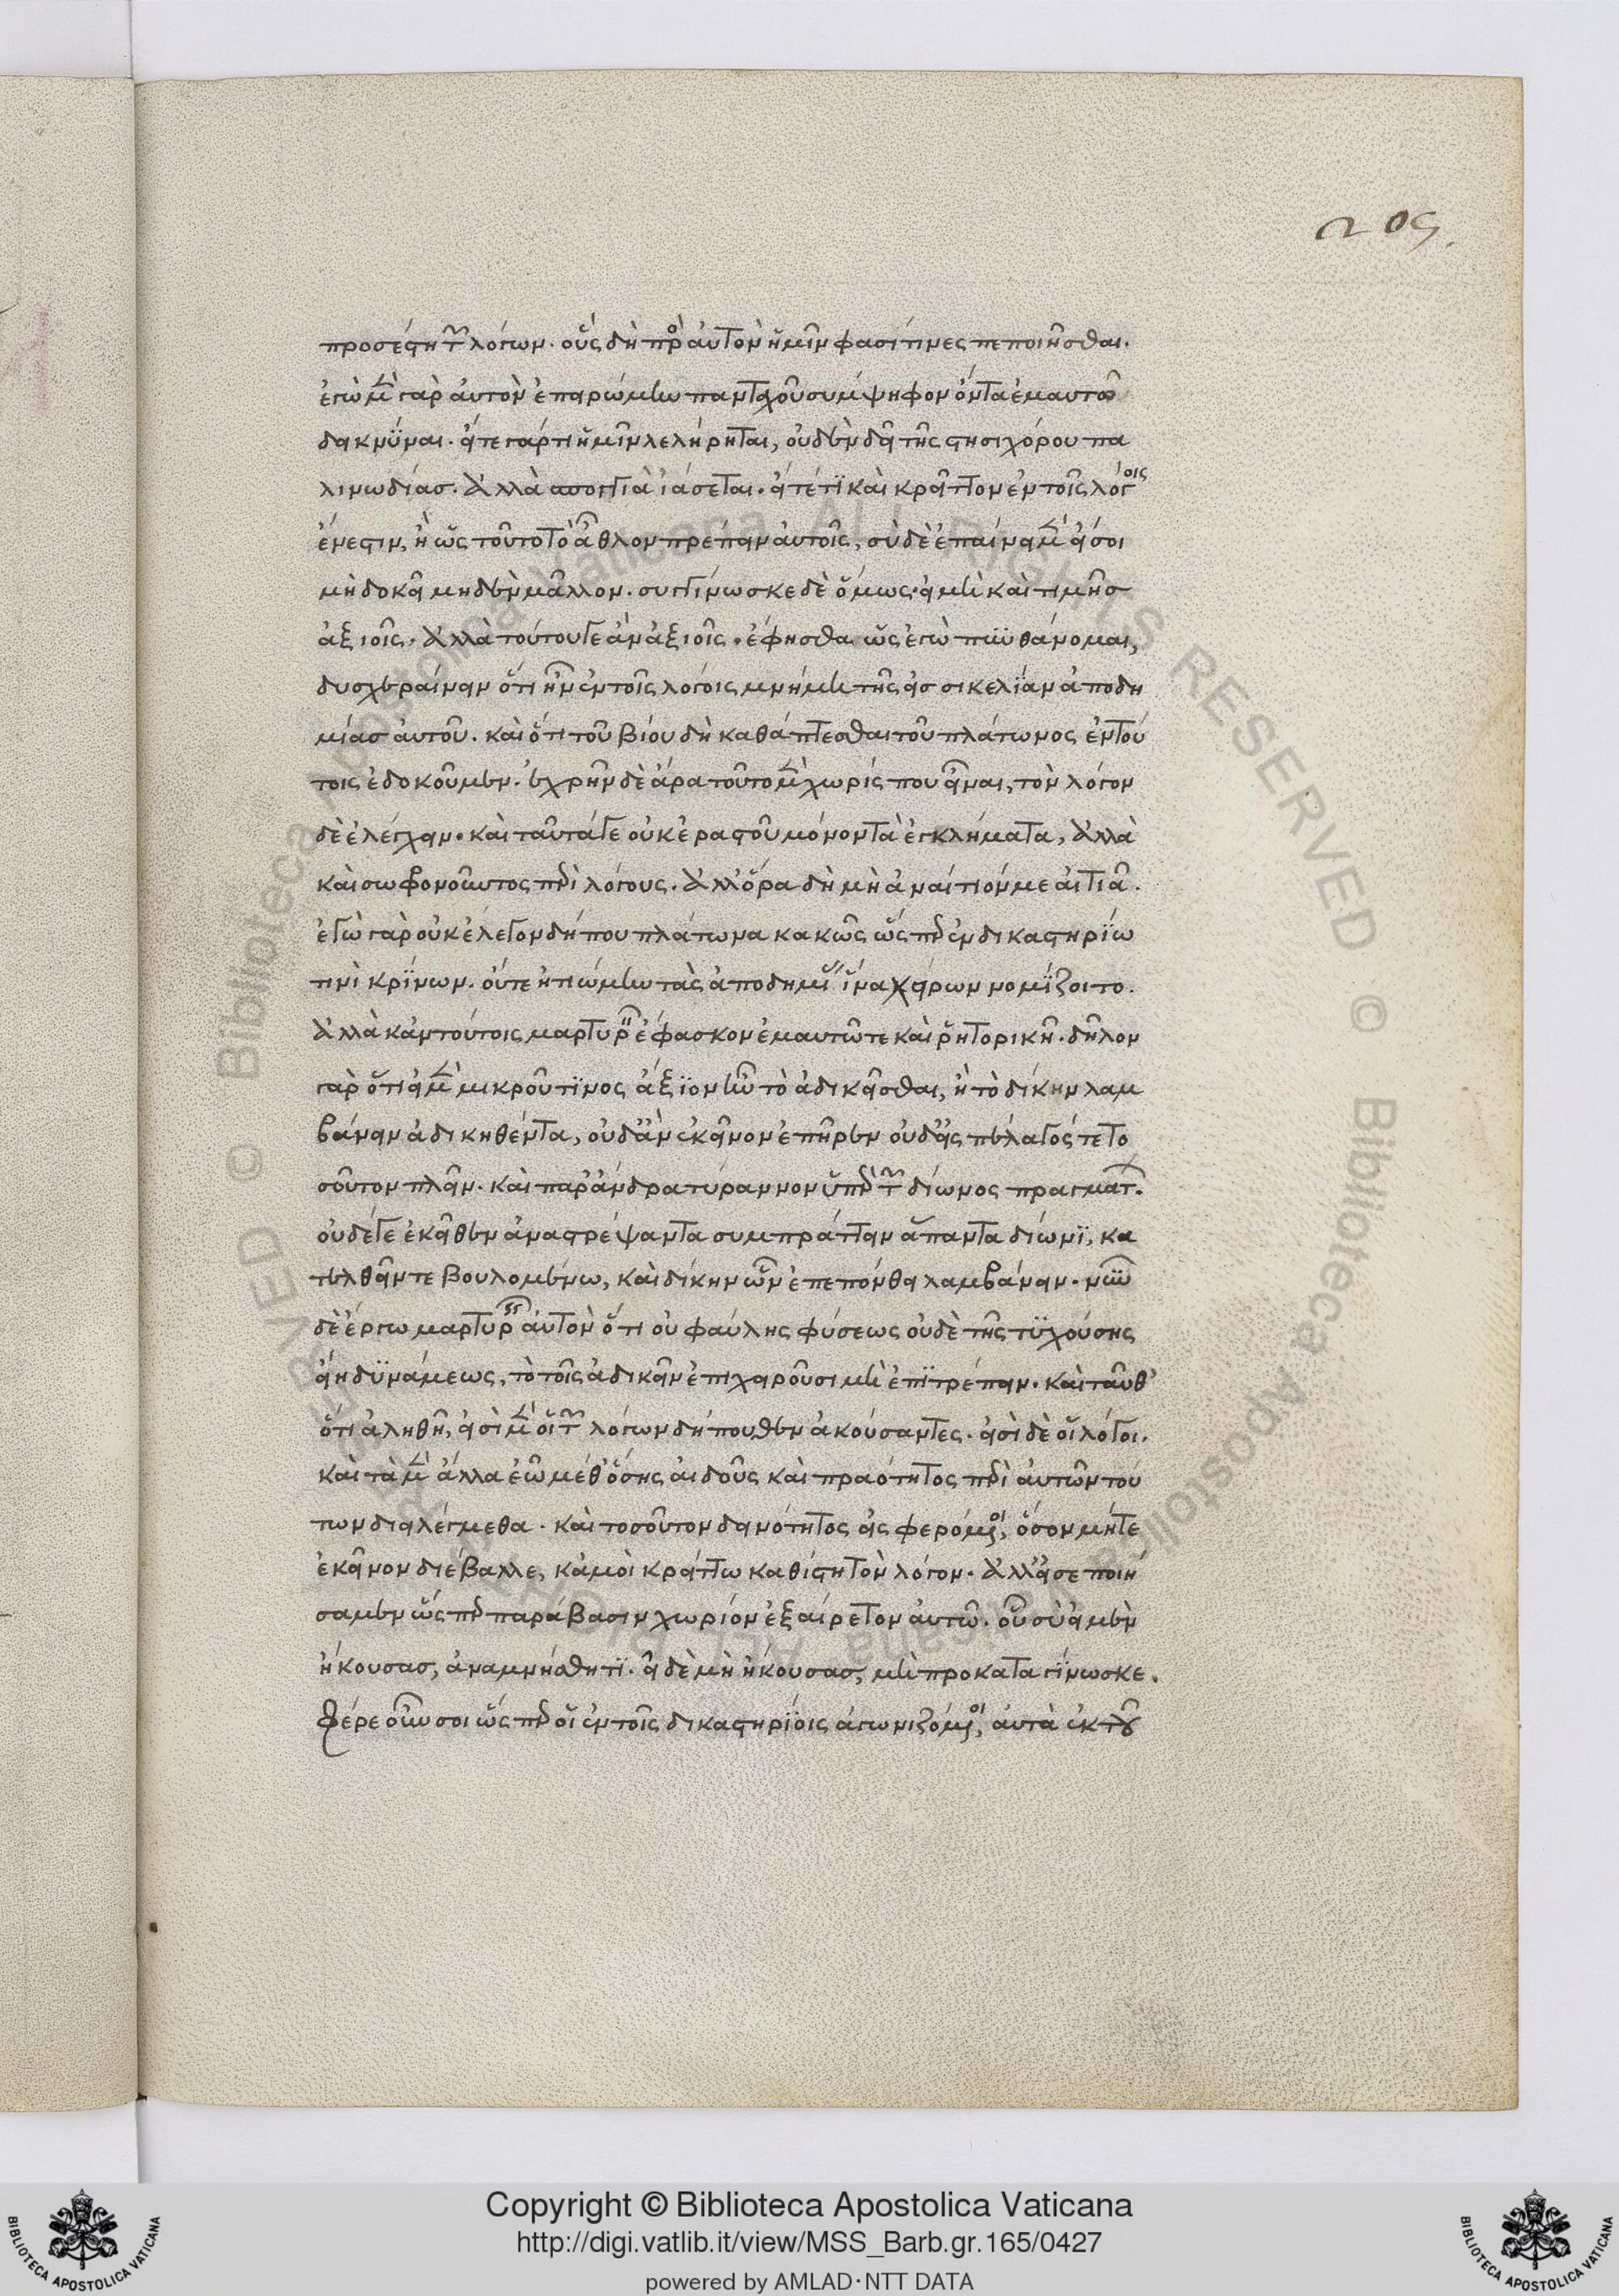 205.
προσέστη τῶν λόγων. οὓς δὴ πρὸς αὐτὸν ἡμῖν φασί τινες πεποιῆσθαι.
ἐγὼ μὲν γὰρ αὐτὸν ἐπηρώμην πανταχοῦ σύμψηφον ὄντα ἐμαυτῶ
δεικνύναι. εἴτε γάρ τι ἡμῖν λελήρηται, οὐδὲν δεῖ τῆς στησιχόρου πα
λινωδίας. ἀλλὰ ἀσιτία ἰάσεται. εἴτέ τι καὶ κρεῖττον ἐν τοῖς λόγοις
ἔνεστιν, ἢ ὡς τοῦτο τὸ ἆθλον πρέπειν αὐτοῖς, σὺ δὲ ἐπαίνει μὲν εἴ σοι
μὴ δοκεῖ μηδὲν μᾶλλον. συγγίνωσκε δὲ ὅμως. εἰ μὴ καὶ τιμῆς
ἀξιοῖς. ἀλλὰ τούτου γε ἂν ἀξιοῖς. ἔφησθα ὡς ἐγὼ πυνθάνομαι,
δυσχεραίνειν ὅτι ἦν ἐν τοῖς λόγοις μνήμη τῆς εἰς σικελίαν ἀποδη
μίας αὐτοῦ. καὶ ὅτι τοῦ βίου δὴ καθάπτεσθαι τοῦ πλάτωνος ἐν τού
τοις ἐδοκοῦμεν. ἐχρῆν δὲ ἄρα τοῦτο μὲν χωρίς που εἶναι, τὸν λόγον
δὲ ἐλέγχειν. καὶ ταῦτά γε οὐκ ἐραστοῦ μόνον τὰ ἐγκλήματα, ἀλλὰ
καὶ σωφρονοῦντος περὶ λόγους. ἀλλ' ὅρα δὴ μὴ ἀναίτιόν με αἰτιᾶ.
ἐγὼ γὰρ οὐκ ἔλεγον δήπου πλάτωνα κακῶς ὥσπερ ἐν δικαστηρίω
τινὶ κρίνων. οὔτε ἠτιώμην τὰς ἀποδημίας ἵνα χείρων νομίζοιτο.
ἀλλὰ κἀν τούτοις μαρτυρεῖν ἔφασκον ἐμαυτῶ τε καὶ ῥητορικῆ. δῆλον
γὰρ ὅτι εἰ μὲν μικροῦ τινος ἄξιον ἦν τὸ ἀδικεῖσθαι, ἢ τὸ δίκην λαμ
βάνειν ἀδικηθέντα, οὐδ' ἂν ἐκεῖνον ἐπῆρεν οὐδ' εἰς πέλαγός τε το
σοῦτον πλεῖν. καὶ παρ' ἄνδρα τύραννον ὑπὲρ τῶν δίωνος πραγμάτων.
οὐδέ γε ἐκεῖθεν ἀναστρέψαντα συμπράττειν ἅπαντα δίωνι, κα
τελθεῖν τε βουλομένω, καὶ δίκην ὧν ἐπεπόνθει λαμβάνειν. νῦν
δὲ ἔργω μαρτυρεῖν αὐτὸν ὅτι οὐ φαύλης φύσεως οὐδὲ τῆς τυχούσης
εἴη δυνάμεως, τὸ τοῖς ἀδικεῖν ἐπιχειροῦσι μὴ ἐπιτρέπειν. καὶ ταῦθ'
ὅτι ἀληθῆ, εἰσὶ μὲν οἱ τῶν λόγων δήπουθεν ἀκούσαντες. εἰσὶ δὲ οἱ λόγοι.
καὶ τὰ μὲν ἄλλα ἐῶ μεθ' ὅσης αἰδοῦς καὶ πραότητος περὶ αὐτῶν τού
των διειλέγμεθα. καὶ τοσοῦτον δεινότητος εἰς φερόμενοι, ὅσον μήτε
ἐκεῖνον διέβαλλε, κἀμοὶ κρείττω καθίστη τὸν λόγον. ἀλλ' εἴσε ποιή
σαμεν ὥσπερ παράβασιν χωρίον ἐξαίρετον αὐτῶ. οὗ σὺ εἰ μὲν
ἤκουσας, ἀναμνήσθητι. εἰ δὲ μὴ ἤκουσας, μὴ προκαταγίνωσκε.
Φέρε οὖν σοι ὥσπερ οἱ ἐν τοῖς δικαστηρίοις ἀγωνιζόμενοι, αὐτὰ ἐκ τοῦ
Copyright © Biblioteca Apostolica Vaticana
http://digi.vatlib.it/view/MSS_Barb.gr.165/0427
powered by AMLAD·NTT DATA